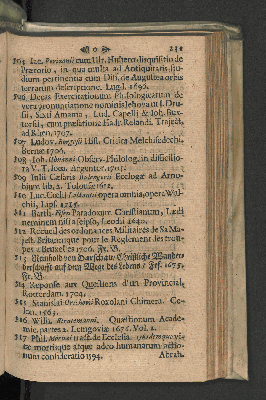 231
Jac. Perizonii cum Ulr. Huberi disquisitio de
Prætorio, in qua multa ad Antiquitatis stu-
dium pertinentia cum Diss. de Augustea orbis
terrarum descriptione. Lugd. 1690.
806 Decas Exercitationum Philologicarum de
vera pronunciatione nominis Jehova in J. Dru-
sii, Sixti Amama, Lud. Capelli & Joh. Bux-
torfii, cum præfatione Hadr. Relandi. Traject.
ad Rhen. 1707.
807 Ludov. Hist. Critica Melchisedechi.
Bernæ 1706.
808 Joh. Observ. Philolog. in difficilio-
ra V. T. loca. Argentor. 1715.
809 Julii Cæsaris Bulengeri Eccloga ad Arno-
bium lib. 2. Tolosæ 1612.
810 Luc. Cœl. Lactantii opera omnia, opera Wal-
chii, Lips. 1715.
811 Barth. Paradoxum Christianum, Lædi
neminem nisi a seipso, Leodii 1640.
812 Recueil des ordonances Militaires de Sa Ma-
jest. Britannique pour le Reglement les trou-
pes a Bruxel 1706. Fr. B.
813 Reinhold von Darschau, Christliche Wander-
derschafft auf dem Wege des Lebens / Fcf. 1675.
Fr. B.
814 Reponse aux Questions d'un Provincial.
Rotterdam. 1704.
815 Stanislai Orechovii Roxolani Chimera. Co-
lon. 1563.
816 Wilh. Quæstionum Acade-
mic. partes 2. Lemgoviæ 1676. Vol. 1.
817 Phil. Mornæi tract. de Ecclesia. vi-
tæ mortisque atque adeo humanarum actio-
num consideratio 1594.
Abrah.